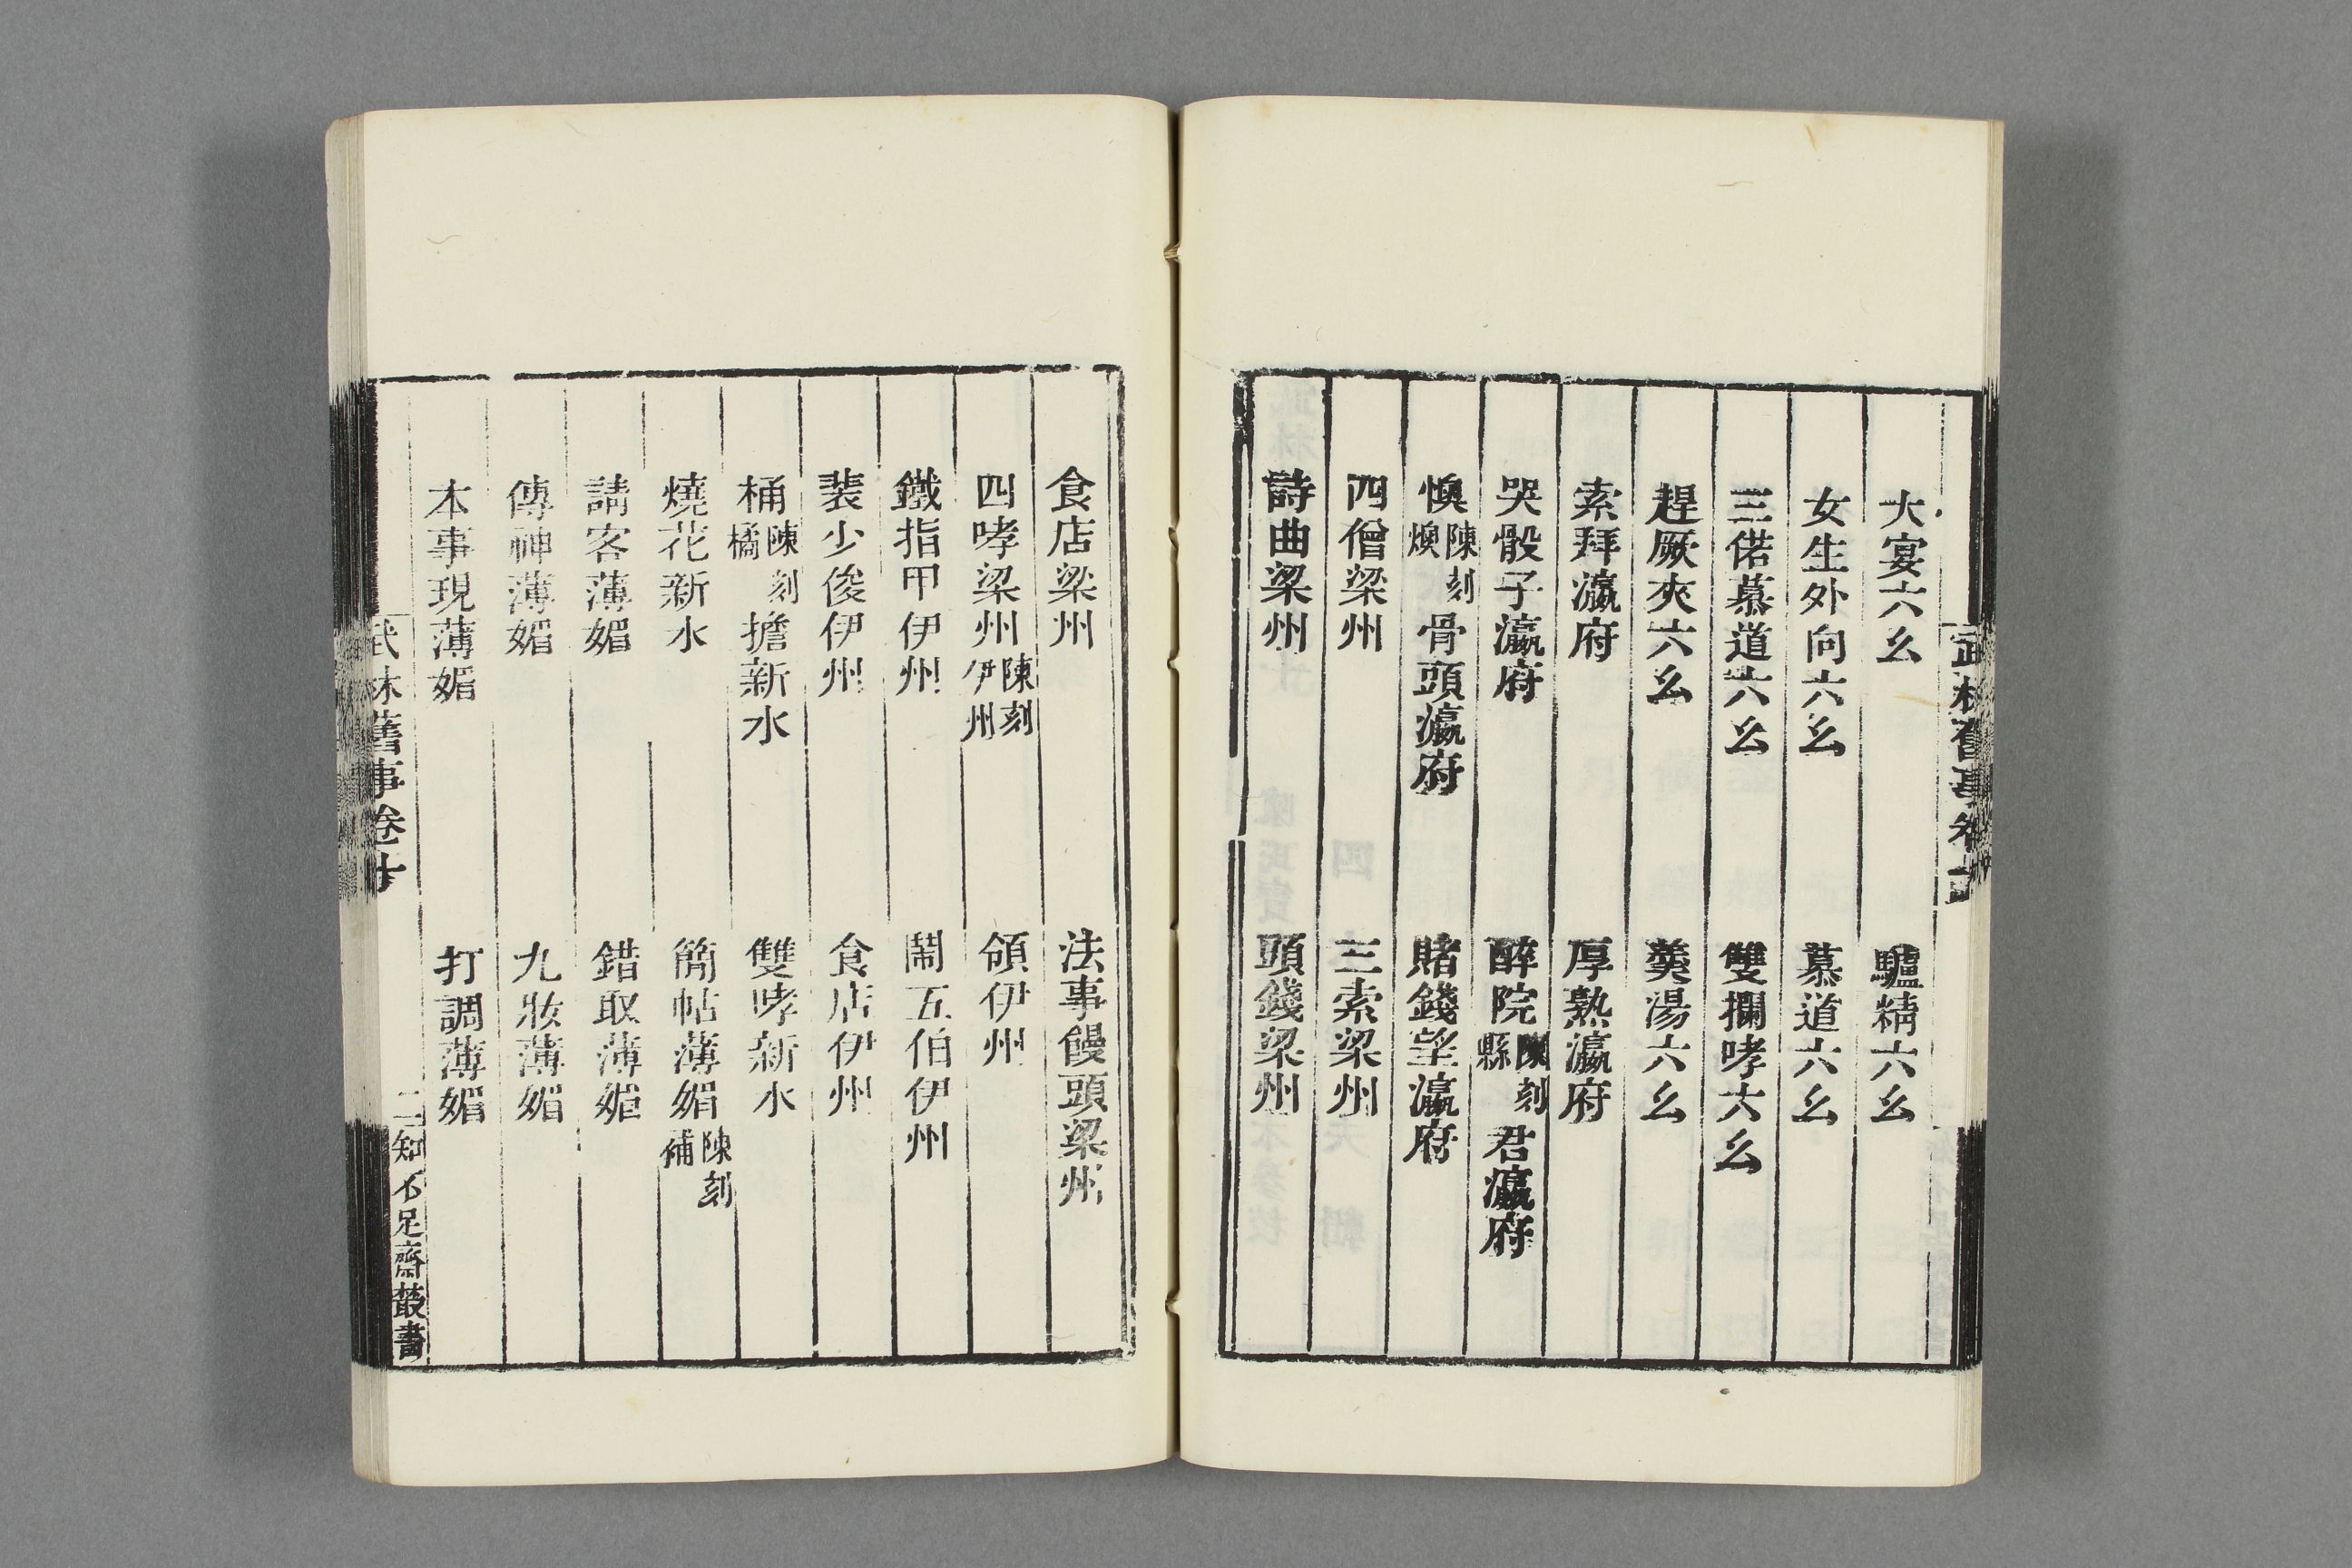 武林舊事卷十
大宴六么　驢精六么
女生外向六么　慕道六么
三偌慕道六么　雙攔哮六么
趕厥夾六么　羹湯六么
索拜瀛府　厚熟瀛府
哭骰子瀛府　醉院陳刻縣君瀛府
懊陳刻燠骨頭瀛府　賭錢望瀛府
四僧梁州　三索梁州
詩曲梁州　頭錢梁州
食店梁州　法事饅頭梁州
四哮梁州陳刻伊州　領伊州
鐵指甲伊州　鬧五伯伊州
裴少俊伊州　食店伊州
桶陳刻橘擔新水　雙哮新水
燒花新水　簡帖薄媚陳刻補
請客薄媚　錯取薄媚
傳神薄媚　九妝薄媚
本事現薄媚　打調薄媚
武林舊事卷十　二　知不足齋叢書